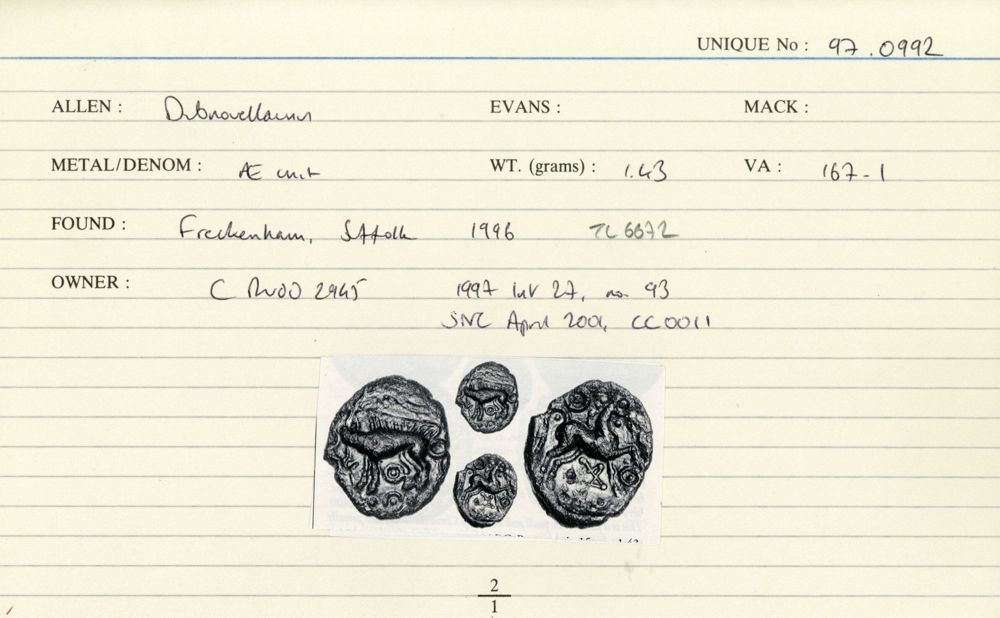 UNIQUE No : 97.0992
ALLEN : Dubnovellaunus EVANS : MACK :
METAL/DENOM : Æ unit WT. (grams) : 1.43 VA : 167-1
FOUND : Freckenham, Suffolk 1996 TL 6672
OWNER : C RUDD 2945 1997 list 27, no. 93
SNC April 2001, CC0011
2
1